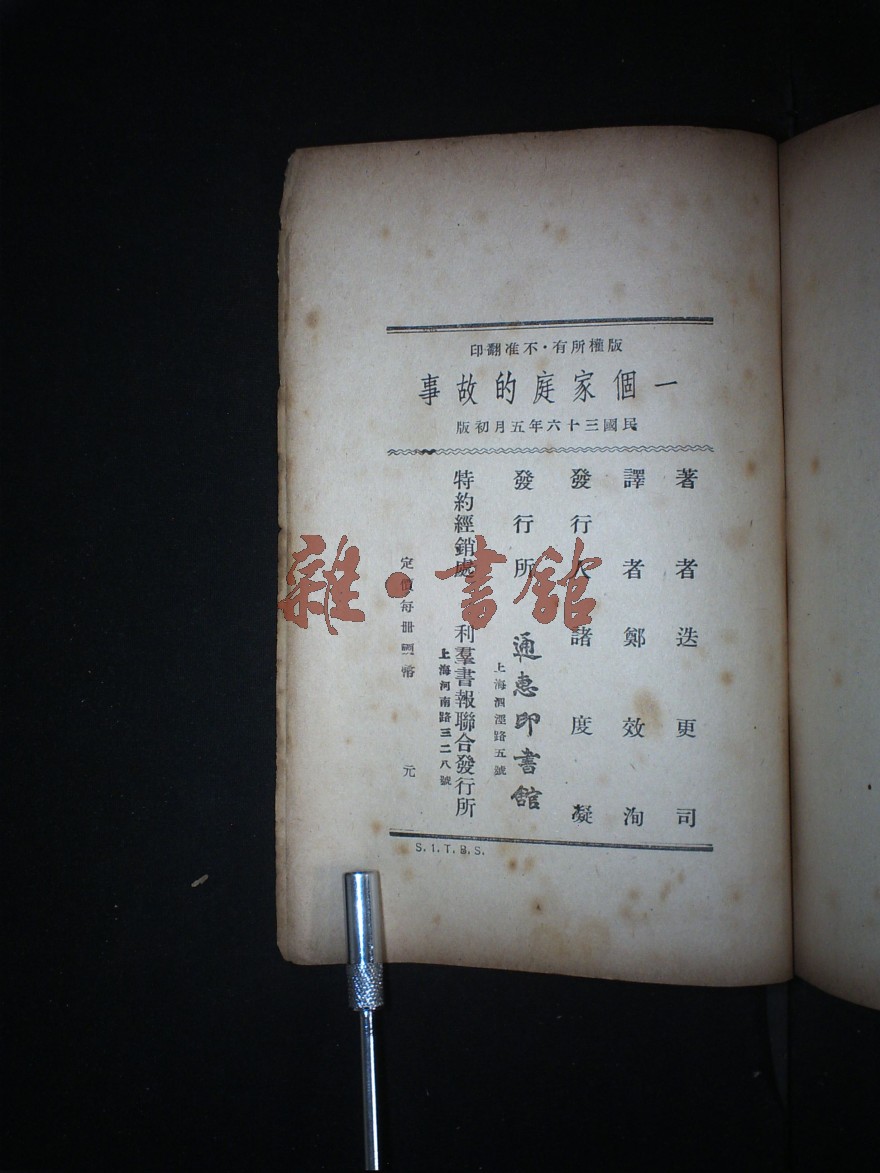 版權所有·不准翻印
一個家庭的故事
民國三十六年五月初版
著者迭更司
譯者鄭效洵
發行人諸度凝
發行所 通惠印書館
上海泗涇路五號
特約經銷處 利羣書報聯合發行所
上海河南路三二八號
定價每冊國幣 元
S.I.T.B.S.
雜·書館